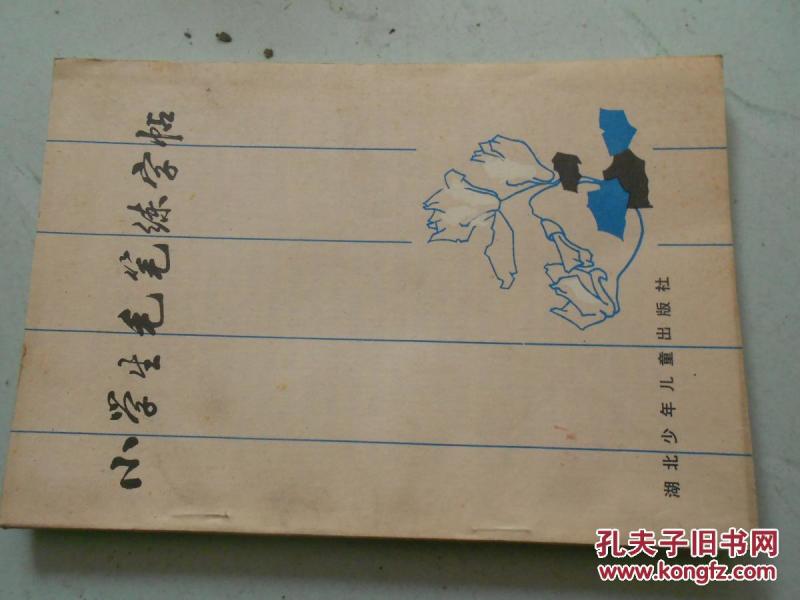 小学生毛笔练字帖
湖北少年儿童出版社
孔夫子旧书网
www.kongfz.com